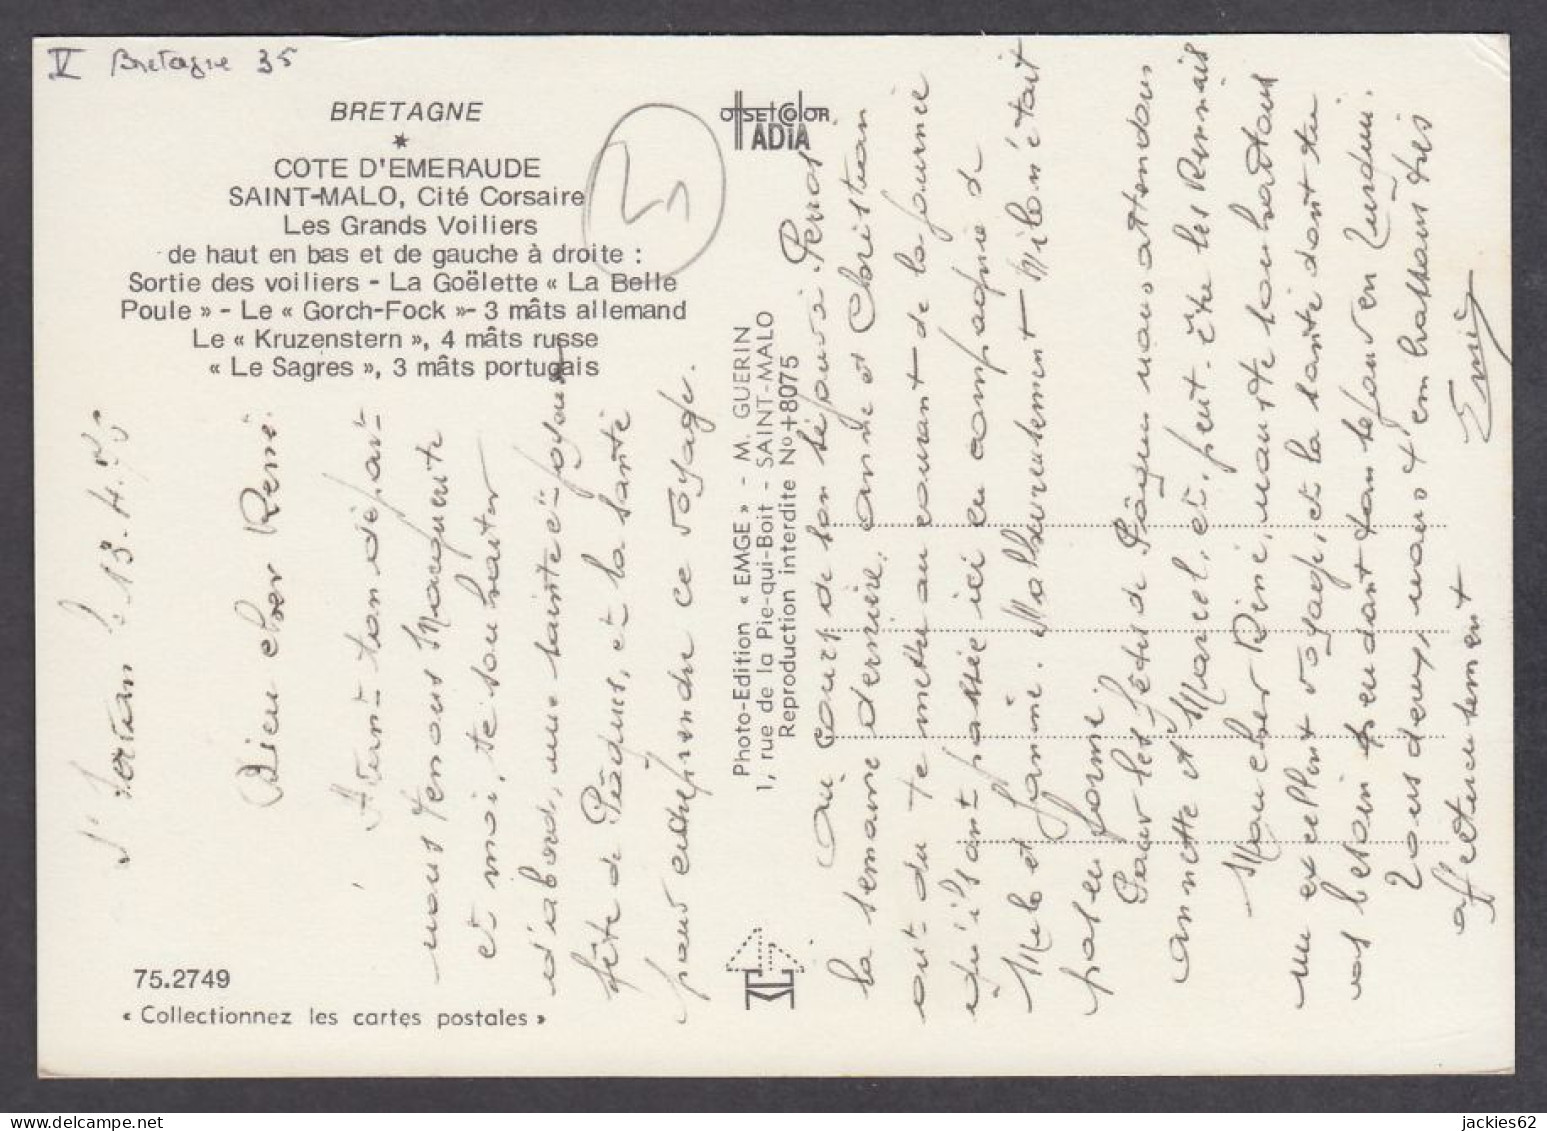 V Bretagne 35
BRETAGNE
*
COTE D'EMERAUDE
SAINT-MALO, Cité Corsaire
Les Grands Voiliers
de haut en bas et de gauche à droite :
Sortie des voiliers - La Goëlette « La Belle
Poule » - Le « Gorch-Fock »- 3 mâts allemand
Le « Kruzenstern », 4 mâts russe
« Le Sagres », 3 mâts portugais
75.2749
« Collectionnez les cartes postales »
OffSET COLOR
ADIA
Photo-Edition « EMGE » - M. GUERIN
1, rue de la Pie-qui-Boit - SAINT-MALO
Reproduction interdite No+8075
13.4.
cher René
Avant ton départ
nous tenons Marguerite
et moi, te souhaiter
d'abord, une sainte et joyeuse
fête de Pâques, et la santé
pour entreprendre ce voyage.
Au cours de son séjour à Perros
la semaine dernière, Annie et Christian
ont du te mettre au courant de la journée
qu'ils ont passée ici en compagnie de
Milo et Janine. Malheureusement Milo n'était
pas en forme
Pour les fêtes de Pâques nous attendons
Annette et Marcel, et, peut-être les Rennais
Mon cher René, nous te souhaitons
un excellent voyage, et la santé dont tu
as besoin pendant ton séjour en
Tous deux, nous t'embrassons très
affectueusement
jackies62